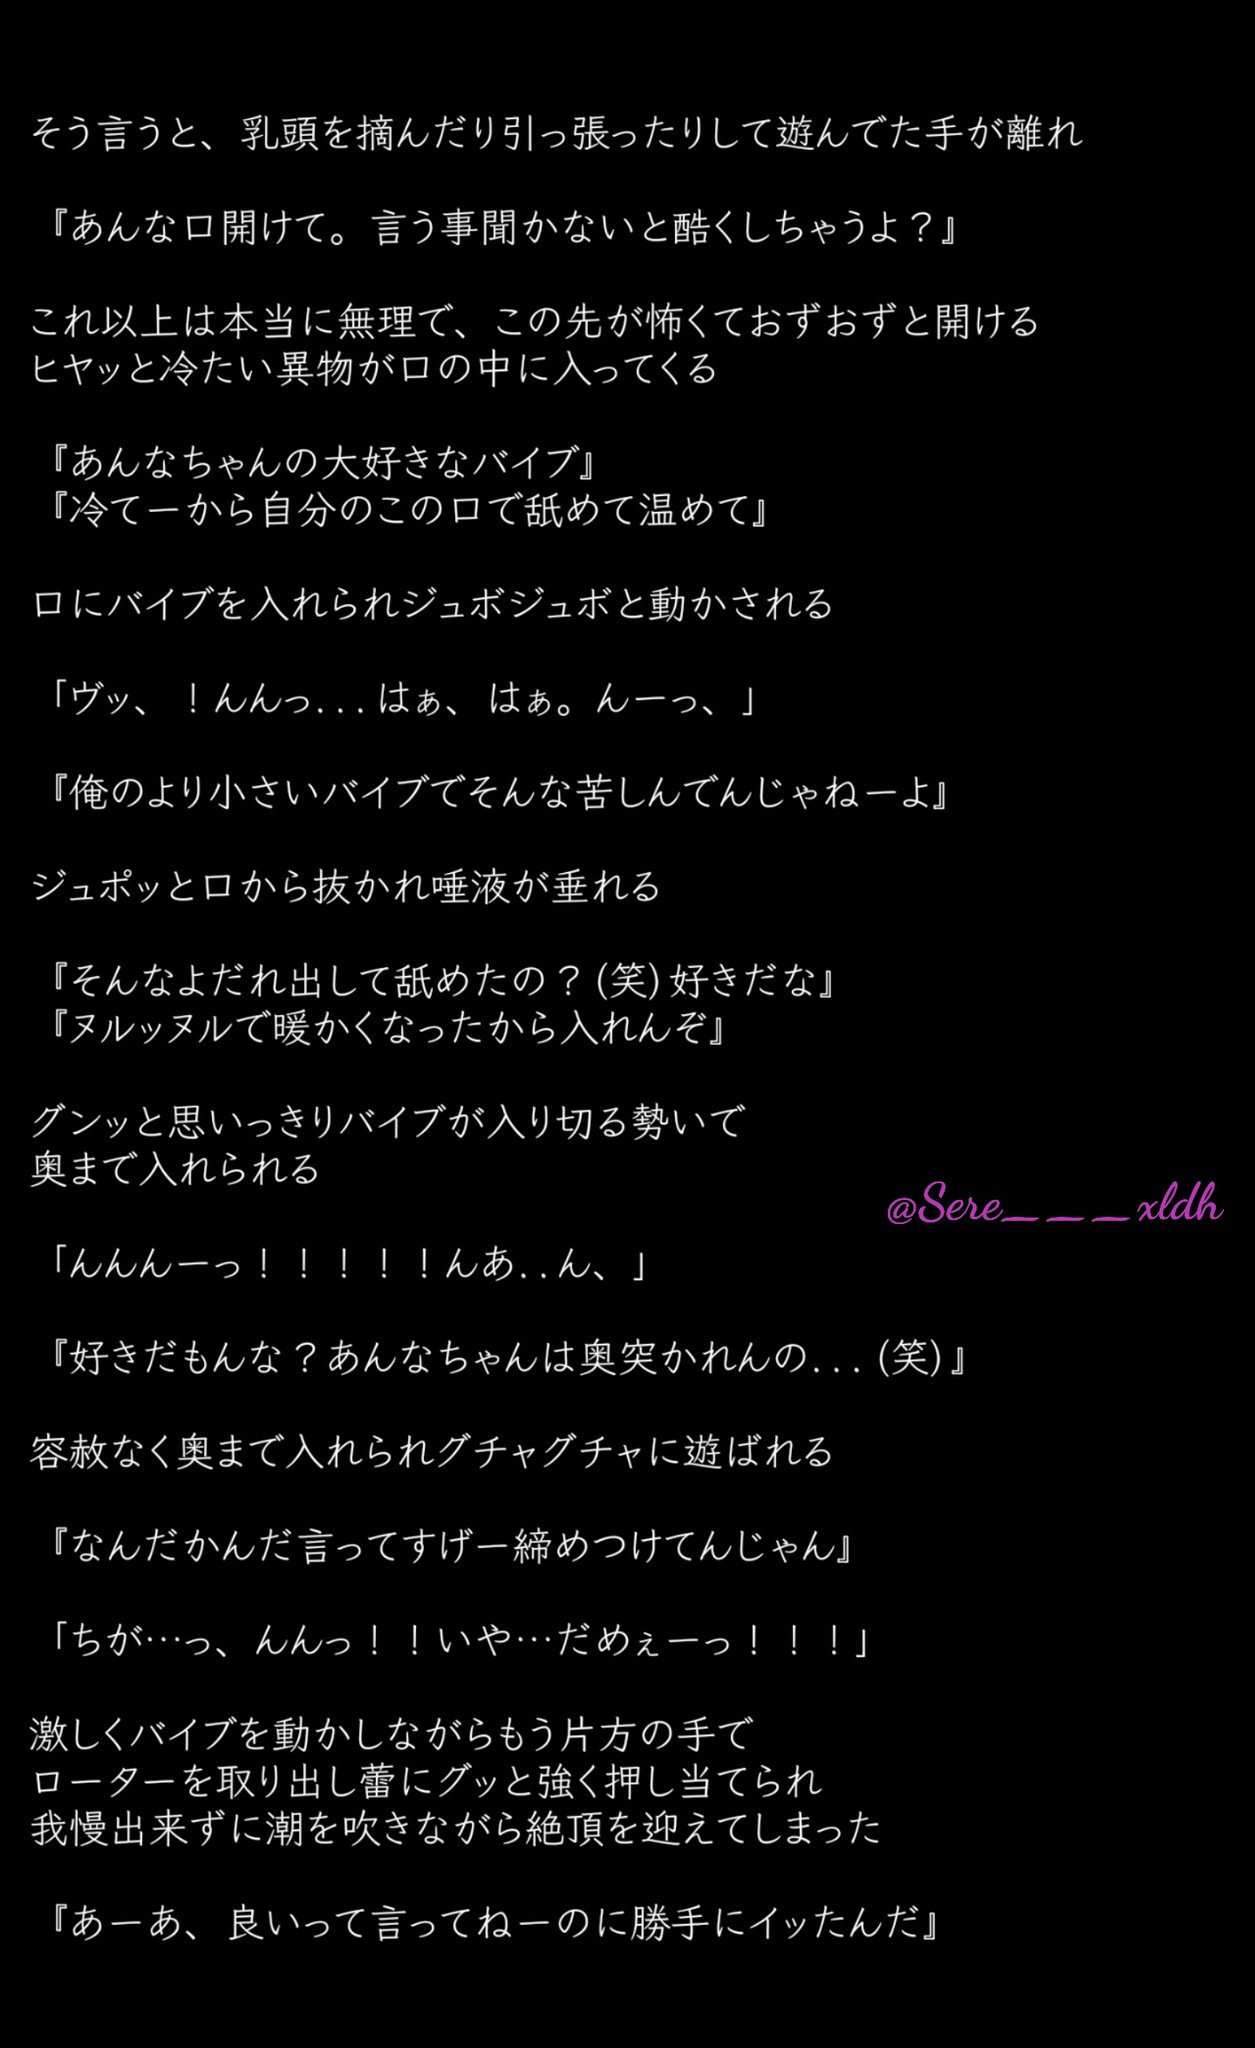 そう言うと、乳頭を摘んだり引っ張ったりして遊んでた手が離れ
『あんな口開けて。言う事聞かないと酷くしちゃうよ？』
これ以上は本当に無理で、この先が怖くておずおずと開ける
ヒヤッと冷たい異物が口の中に入ってくる
『あんなちゃんの大好きなバイブ』
『冷てーから自分のこの口で舐めて温めて』
口にバイブを入れられジュボジュボと動かされる
「ヴッ、！んんっ...はぁ、はぁ。んーっ、」
『俺のより小さいバイブでそんな苦しんでんじゃねーよ』
ジュポッと口から抜かれ唾液が垂れる
『そんなよだれ出して舐めたの？(笑)好きだな』
『ヌルッヌルで暖かくなったから入れんぞ』
グンッと思いっきりバイブが入り切る勢いで
奥まで入れられる
@Sere___xldh
「んんんーっ！！！！！んあ..ん、」
『好きだもんな？あんなちゃんは奥突かれんの...(笑)』
容赦なく奥まで入れられグチャグチャに遊ばれる
『なんだかんだ言ってすげー締めつけてんじゃん』
「ちが…っ、んんっ！！いや…だめぇーっ！！！」
激しくバイブを動かしながらもう片方の手で
ローターを取り出し蕾にグッと強く押し当てられ
我慢出来ずに潮を吹きながら絶頂を迎えてしまった
『あーあ、良いって言ってねーのに勝手にイッたんだ』